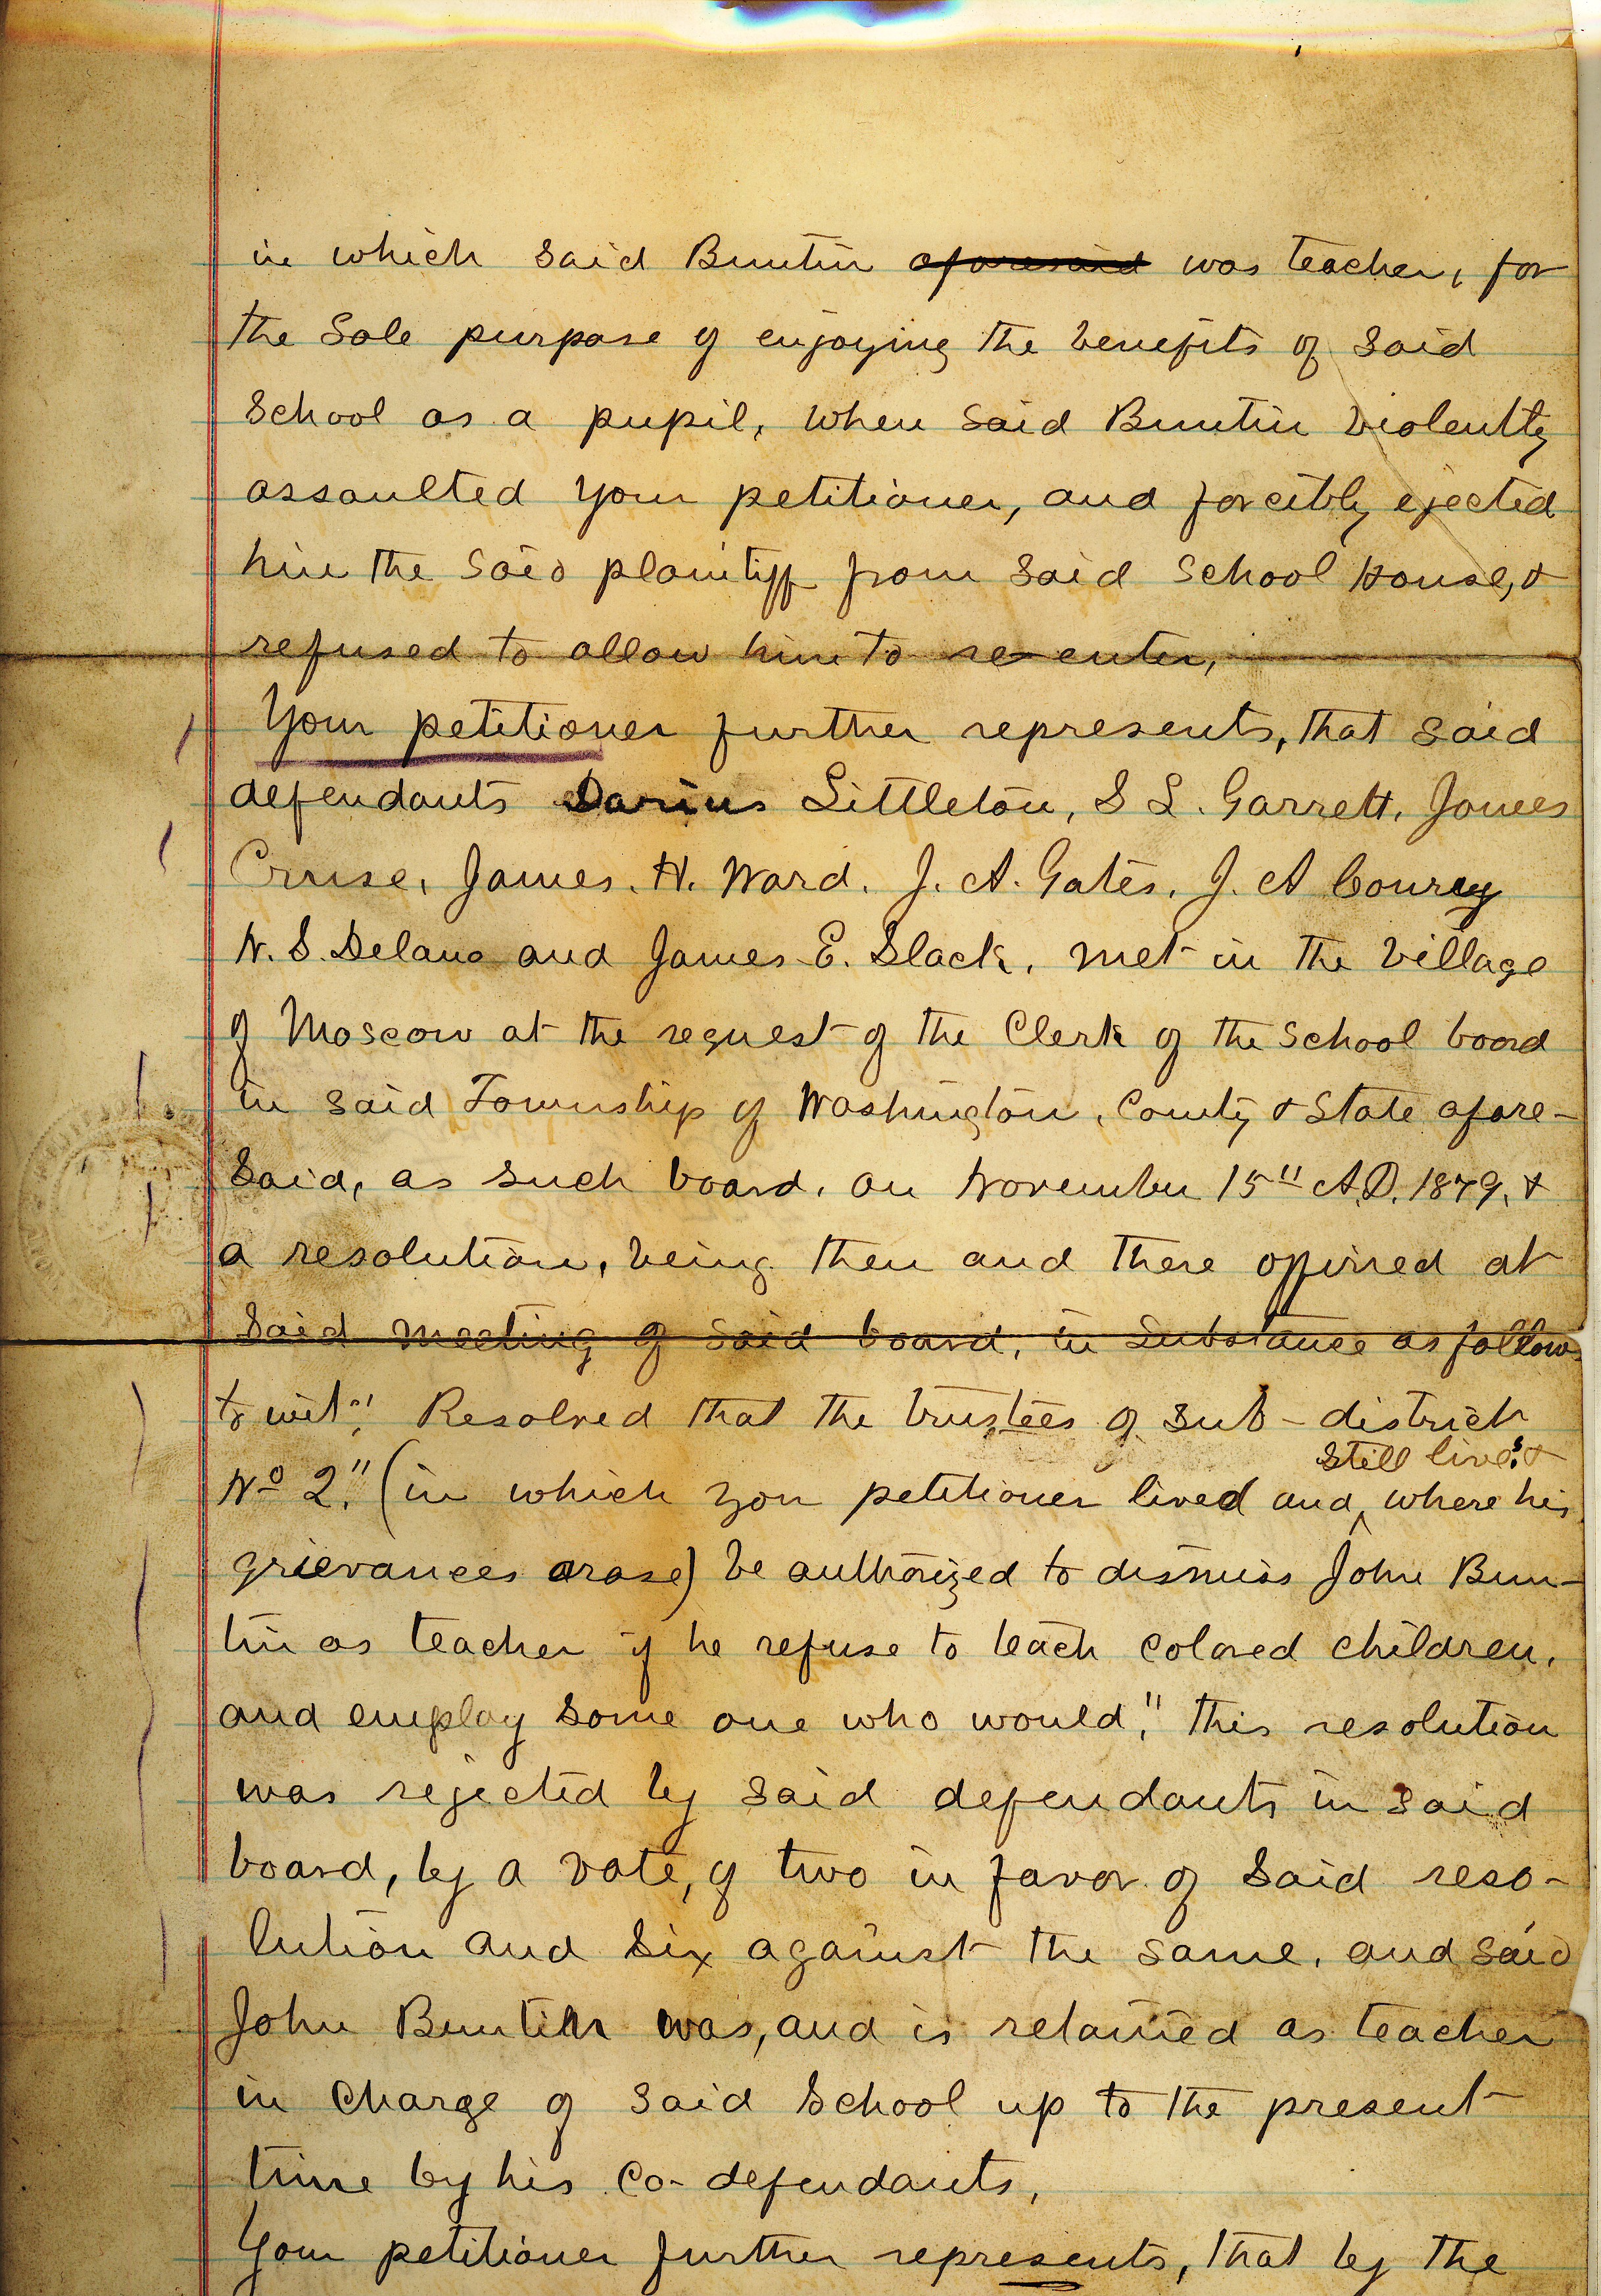 in which said Buntin aforesaid was teacher, for
the Sole purpose of enjoying the benefits of said
School as a pupil, when said Buntin violently
assaulted your petitioner, and forcibly ejected
him the said plaintiff from said School House, &
refused to allow him to re-enter,
Your petitioner further represents, that said
defendants Darius Littleton, S L. Garrett, James
Cruse, James. H. Ward. J. A. Gates. J. A Coury
N. S. Delano and James E. Slack. met in the Village
of Moscow at the request of the Clerk of the School board
in said Township of Washington. County & State afore-
said, as such board. on November 15" A.D. 1879, &
a resolution, being then and there offired at
said meeting of said board, in Substance as follows
to wit:" Resolved that the trustees of sub-district
still lives &
No 2." (in which you petitioner lived and, where his
grievances arose) be authorized to dismiss John Bun-
tin as teacher if he refuse to teach colored children.
and employ some one who would," this resolution
was rejected by said defendants in said
board, by a vote, of two in favor of said reso-
lution and six against the same. and said
John Buntin was, and is retained as teacher
in charge of said School up to the present
time by his co-defendants,
Your petitioner further represents, that by the